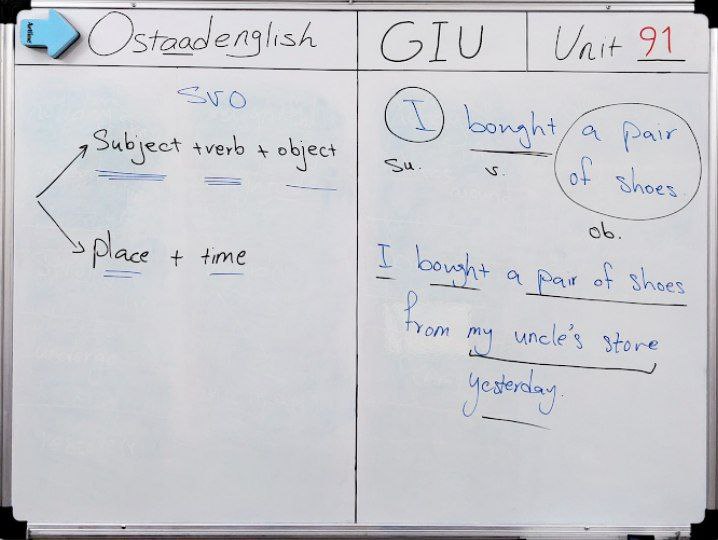 Artline
Ostaadenglish
GIU
Unit 91
SVO
Subject + verb + object
place + time
I bought a pair
of shoes.
Su. v.
ob.
I bought a pair of shoes
from my uncle's store
yesterday.